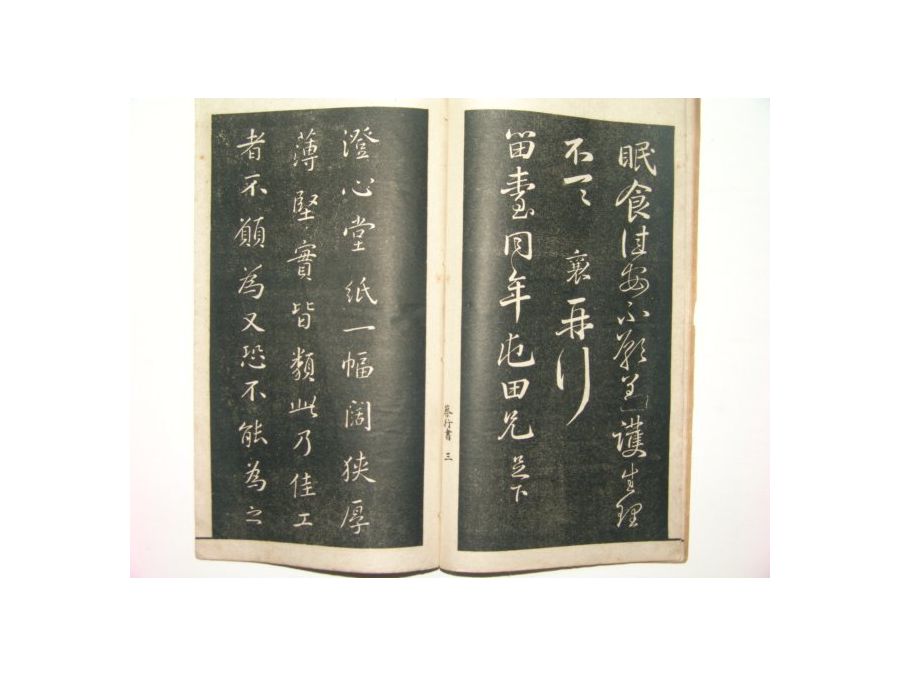 眠食佳安護生理
不一一 襄再拜
留臺同年屯田兄足下
蔡行書 三
澄心堂紙一幅闊狹厚
薄堅實皆類此乃佳工
者不願為又恐不能為之